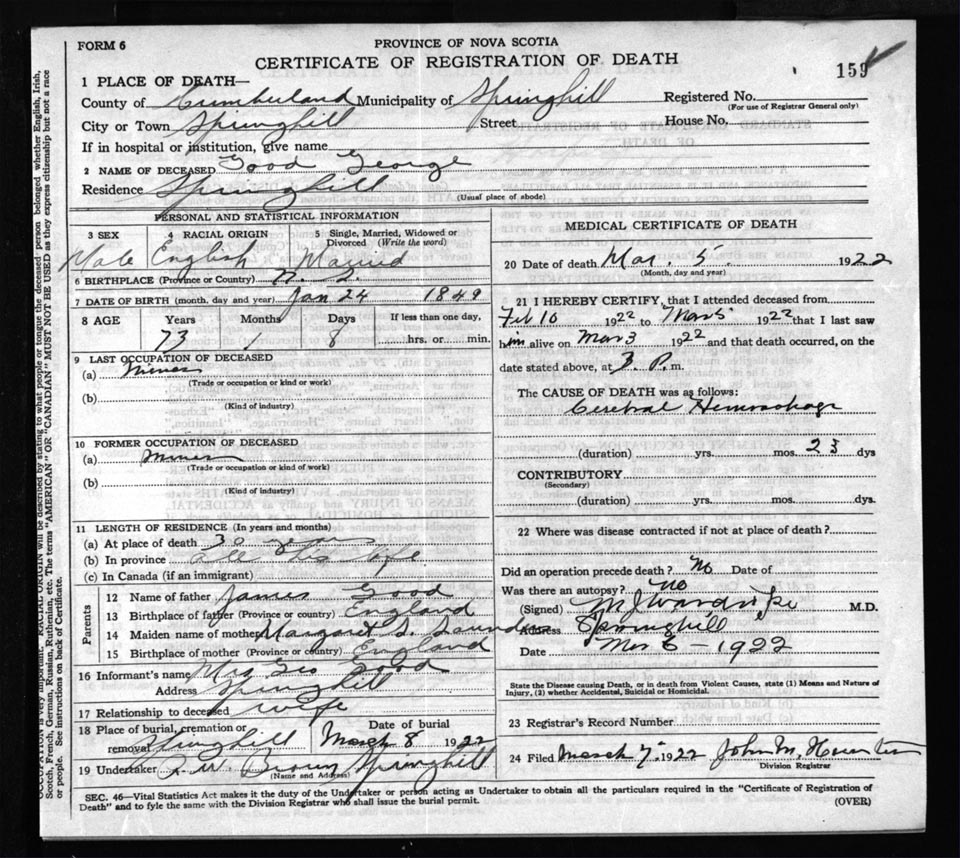 FORM 6
PROVINCE OF NOVA SCOTIA
CERTIFICATE OF REGISTRATION OF DEATH
159
1 PLACE OF DEATH—
County of Cumberland Municipality of Springhill Registered No.
(For use of Registrar General only)
City or Town Springhill Street House No.
If in hospital or institution, give name
2 NAME OF DECEASED Good George
Residence Springhill
(Usual place of abode)
PERSONAL AND STATISTICAL INFORMATION
3 SEX 4 RACIAL ORIGIN 5 Single, Married, Widowed or Divorced (Write the word)
Male English Married
6 BIRTHPLACE (Province or Country) N. S.
7 DATE OF BIRTH (month, day and year) Jan 24 1849
8 AGE Years Months Days If less than one day,
73 1 8 hrs. or min.
9 LAST OCCUPATION OF DECEASED
(a) Miner
(Trade or occupation or kind or work)
(b)
(Kind of industry)
10 FORMER OCCUPATION OF DECEASED
(a) Miner
(Trade or occupation or kind of work)
(b)
(Kind of industry)
11 LENGTH OF RESIDENCE (In years and months)
(a) At place of death 30 years
(b) In province All his life
(c) In Canada (if an immigrant)
Parents
12 Name of father James Good
13 Birthplace of father (Province or country) England
14 Maiden name of mother Margaret S. Saunders
15 Birthplace of mother (Province or country) England
16 Informant's name Mrs Geo Good
Address Springhill
17 Relationship to deceased wife
18 Place of burial, cremation or removal Springhill Date of burial March 8 1922
19 Undertaker Brown Springhill
(Name and Address)
MEDICAL CERTIFICATE OF DEATH
20 Date of death Mar. 5. 1922
(Month, day and year)
21 I HEREBY CERTIFY, that I attended deceased from
Feb 10 1922 to Mar 5 1922 that I last saw
him alive on Mar 3 1922 and that death occurred, on the
date stated above, at 3. P. m.
The CAUSE OF DEATH was as follows:
Cerebral Hemorrhage
(duration) yrs. mos. 23 dys
CONTRIBUTORY
(Secondary)
(duration) yrs. mos. dys.
22 Where was disease contracted if not at place of death?
Did an operation precede death? No Date of
Was there an autopsy? no
(Signed) M.D.
Address Springhill
Date Mar 6 - 1922
State the Disease causing Death, or in death from Violent Causes, state (1) Means and Nature of
Injury, (2) whether Accidental, Suicidal or Homicidal.
23 Registrar's Record Number
24 Filed March 7, 1922 John M. Hunter
Division Registrar
SEC. 46—Vital Statistics Act makes it the duty of the Undertaker or person acting as Undertaker to obtain all the particulars required in the "Certificate of Registration of
Death" and to fyle the same with the Division Registrar who shall issue the burial permit.
(OVER)
OCCUPATION is very important. RACIAL ORIGIN will be described by stating to what people or tongue the deceased person belonged whether English, Irish,
Scotch, French, German, Russian, Ruthenian, etc. The terms "AMERICAN" OR "CANADIAN" MUST NOT BE USED as they express citizenship but not a race
or people. See instructions on back of Certificate.